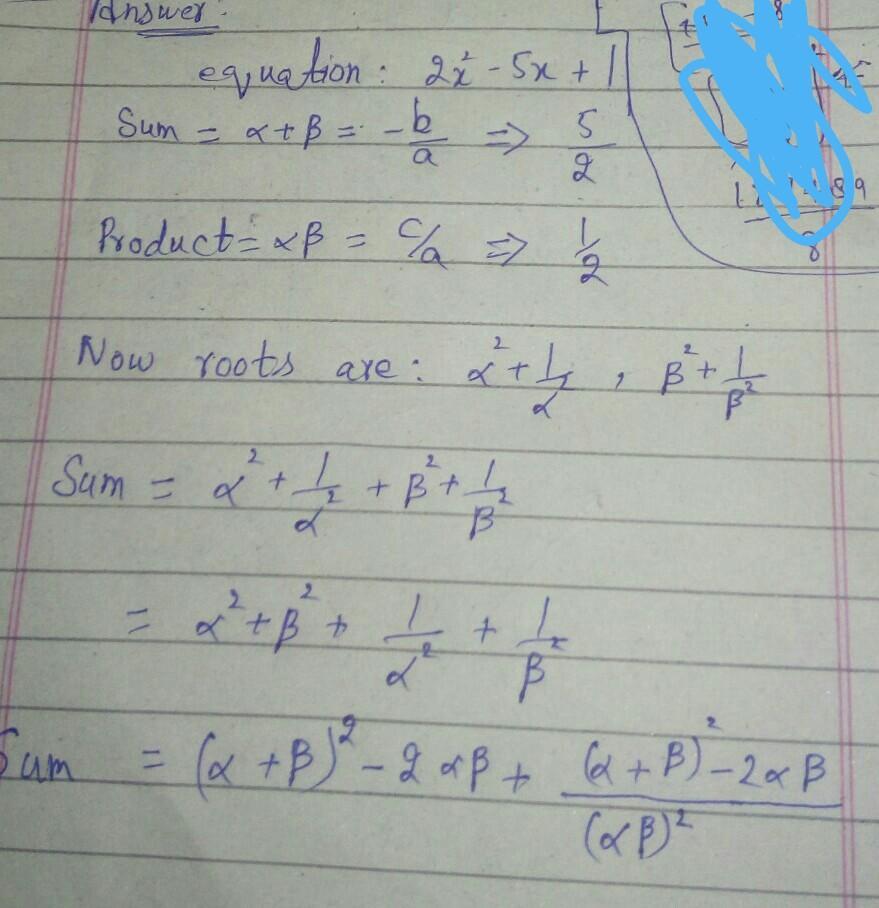 Answer:
equation: 2x² - 5x + 1
Sum = α + β = -b/a ⇒ 5/2
Product = αβ = c/a ⇒ 1/2
Now roots are: α² + 1/α², β² + 1/β²
Sum = α² + 1/α² + β² + 1/β²
= α² + β² + 1/α² + 1/β²
Sum = (α + β)² - 2αβ + (α + β)² - 2αβ/(αβ)²
8